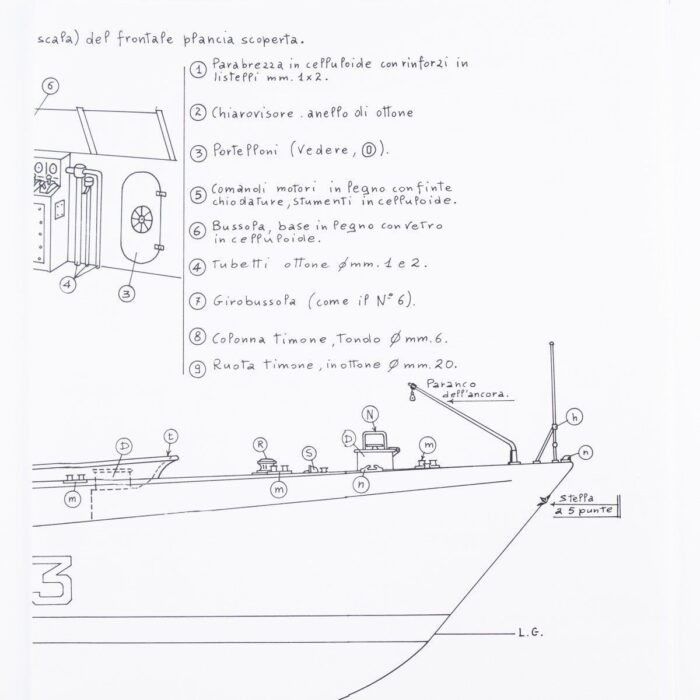 scala) del frontale plancia scoperta.
1 Parabrezza in celluloide con rinforzi in
listelli mm. 1x2.
2 Chiarovisore . anello di ottone
3 Portelloni (Vedere, O).
5 Comandi motori in legno con finte
chiodature, stumenti in celluloide.
6 Bussola, base in legno con vetro
in celluloide.
4 Tubetti ottone Ø mm. 1 e 2.
7 Girobussola (come il N° 6).
8 Colonna timone, tondo Ø mm. 6.
9 Ruota timone, in ottone Ø mm. 20.
6
4
3
Paranco
dell'ancora.
h
n
N
D
m
R
S
t
D
m
m
n
Stella
a 5 punte
3
L.G.